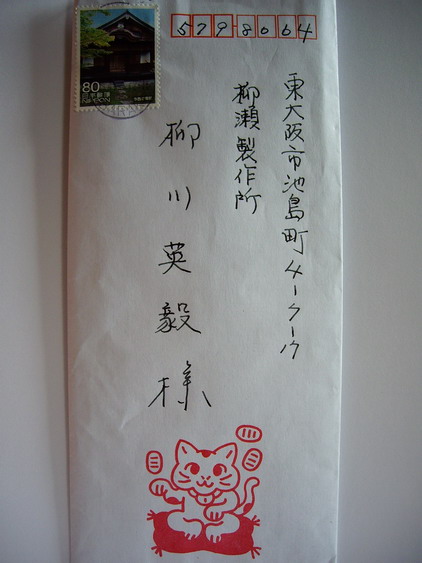 80
日本郵便
NIPPON
579-8064
東大阪市池島町4-5-19
柳瀬製作所
柳川英毅様